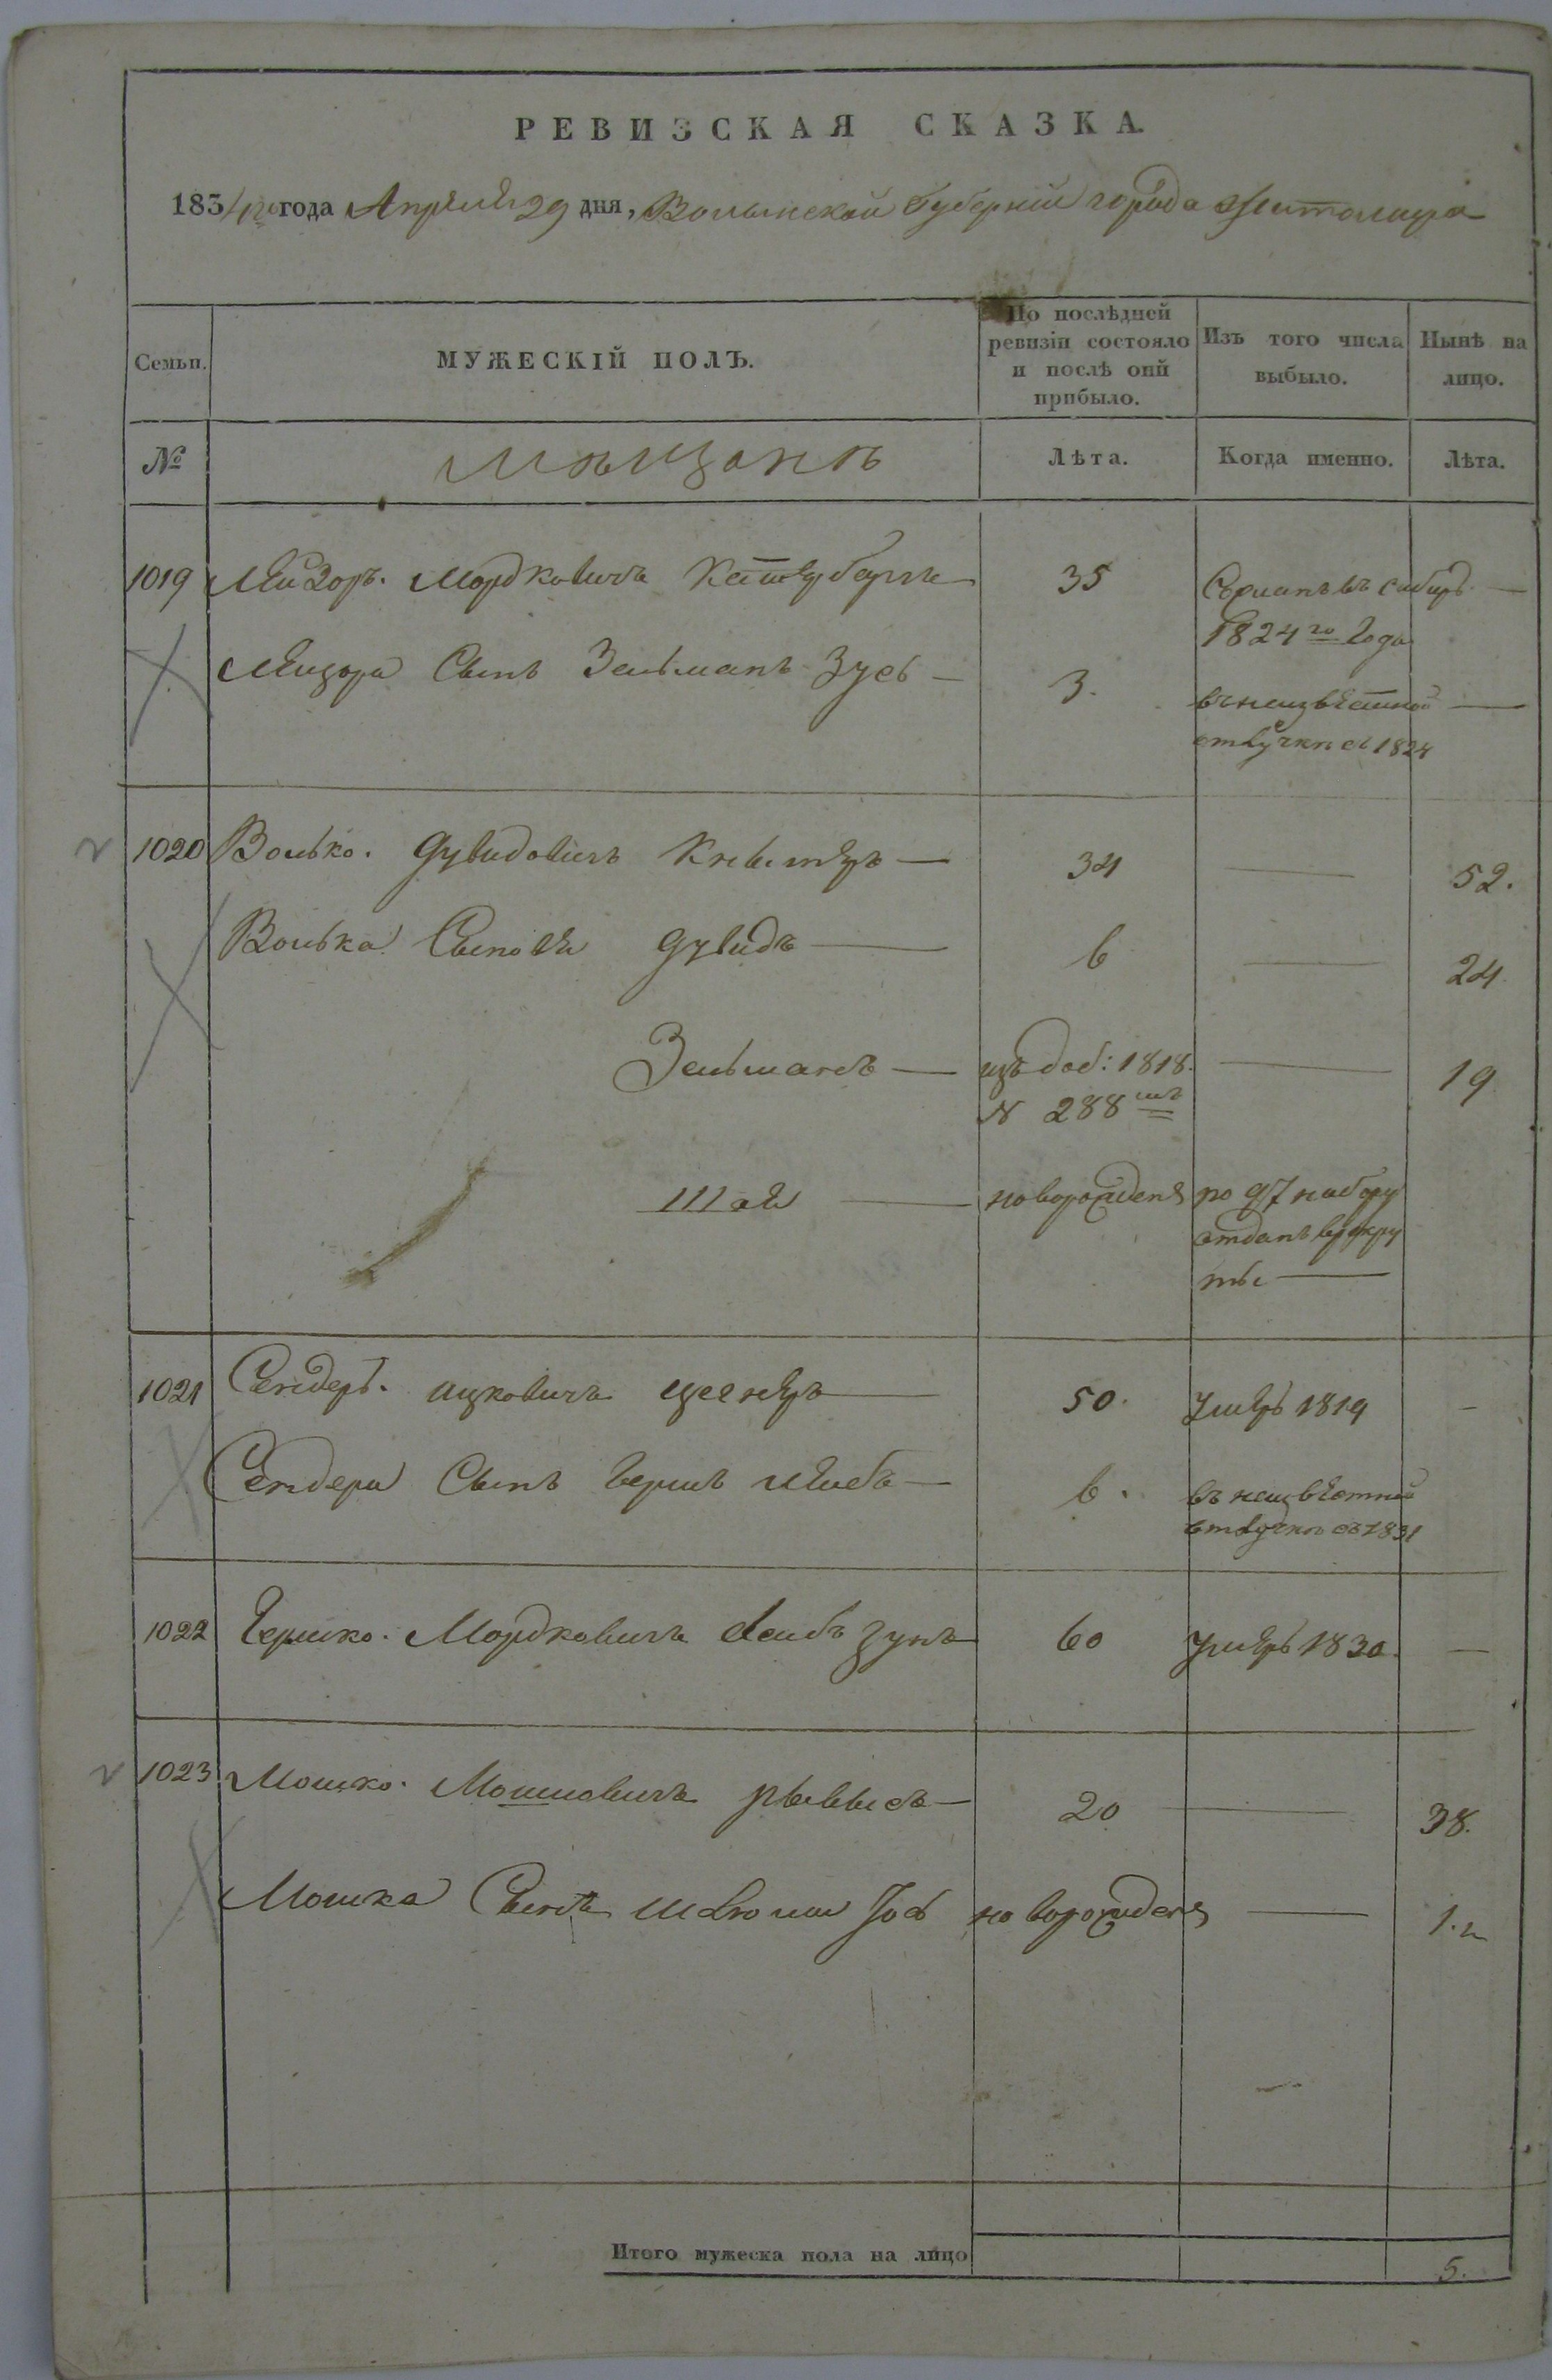 РЕВИЗСКАЯ СКАЗКА.
1834го года Апреля 29 дня, Волынской Губернии города Житомира
Семьи. МУЖЕСКІЙ ПОЛЪ. По послѣдней ревизіи состояло и послѣ оній прибыло. Изъ того числа выбыло. Нынѣ на лицо.
№ Мѣщанъ Лѣта. Когда именно. Лѣта.
1019 Лейзоръ. Мордковичъ 35 въ сибирь —
1824го Года
Лейзора Сынъ Зельманъ Зусь — 3. въ неизвестной —
отлучкѣ съ 1824
1020 Волько. Дувидовичъ — 34 — 52.
Волька Сыновя Дувидъ — 6 — 24
Зельманъ — изъ доб: 1818. — 19
N 288
Шая — новорожденъ по 97 набору
отданъ врекру
ты —
1021 Сендеръ. Ицковичъ — 50. умеръ 1819 —
Сендера Сынъ Герш лейбъ — 6. въ неизвестной
отлучкѣ съ 1831
1022 Гершко. Мордковичъ 60 умеръ 1830. —
1023 Мошко. Мошковичъ — 20 — 38.
Мошка Сынъ новорожденъ — 1.
Итого мужеска пола на лицо 5.